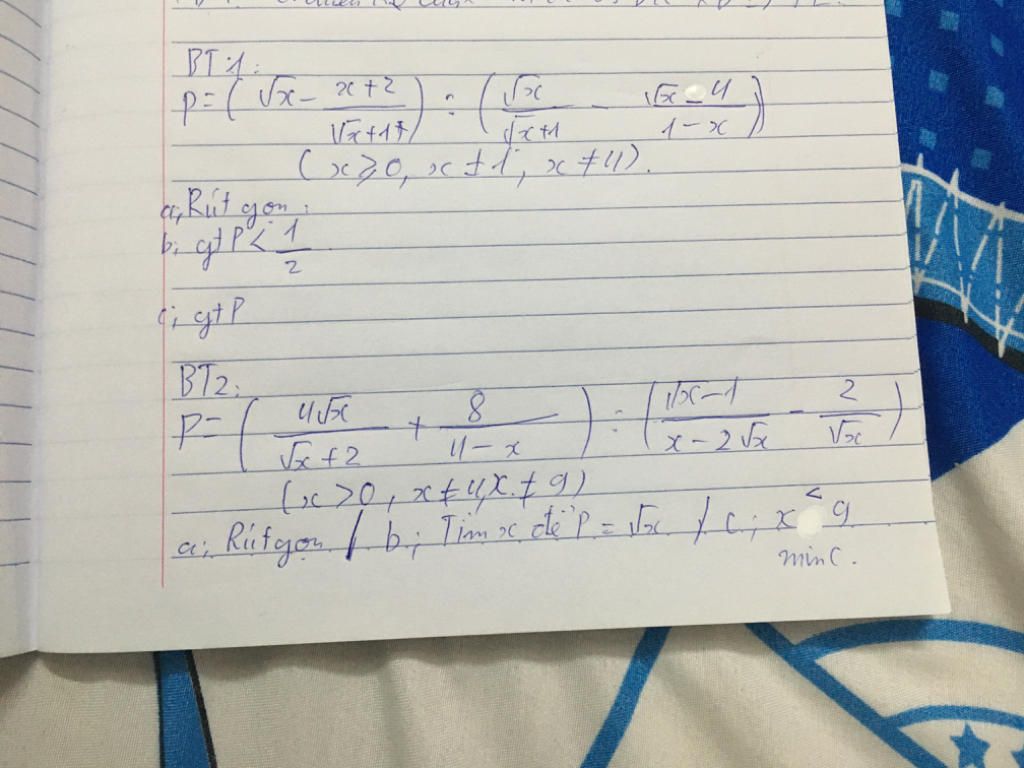 BT1:
P = ( √x - x+2 / √x+1 ) : ( √x / √x+1 - √x-4 / 1-x )
( x ⩾ 0, x ≠ 1, x ≠ 4 ).
a; Rút gọn:
b; gt P < 1/2
c; gt P
BT2:
P = ( 4√x / √x+2 + 8 / 4-x ) : ( √x-1 / x-2√x - 2 / √x )
( x > 0, x ≠ 4, x ≠ 9 )
a; Rút gọn / b; Tìm x để P = √x / c; x < 9
min c.